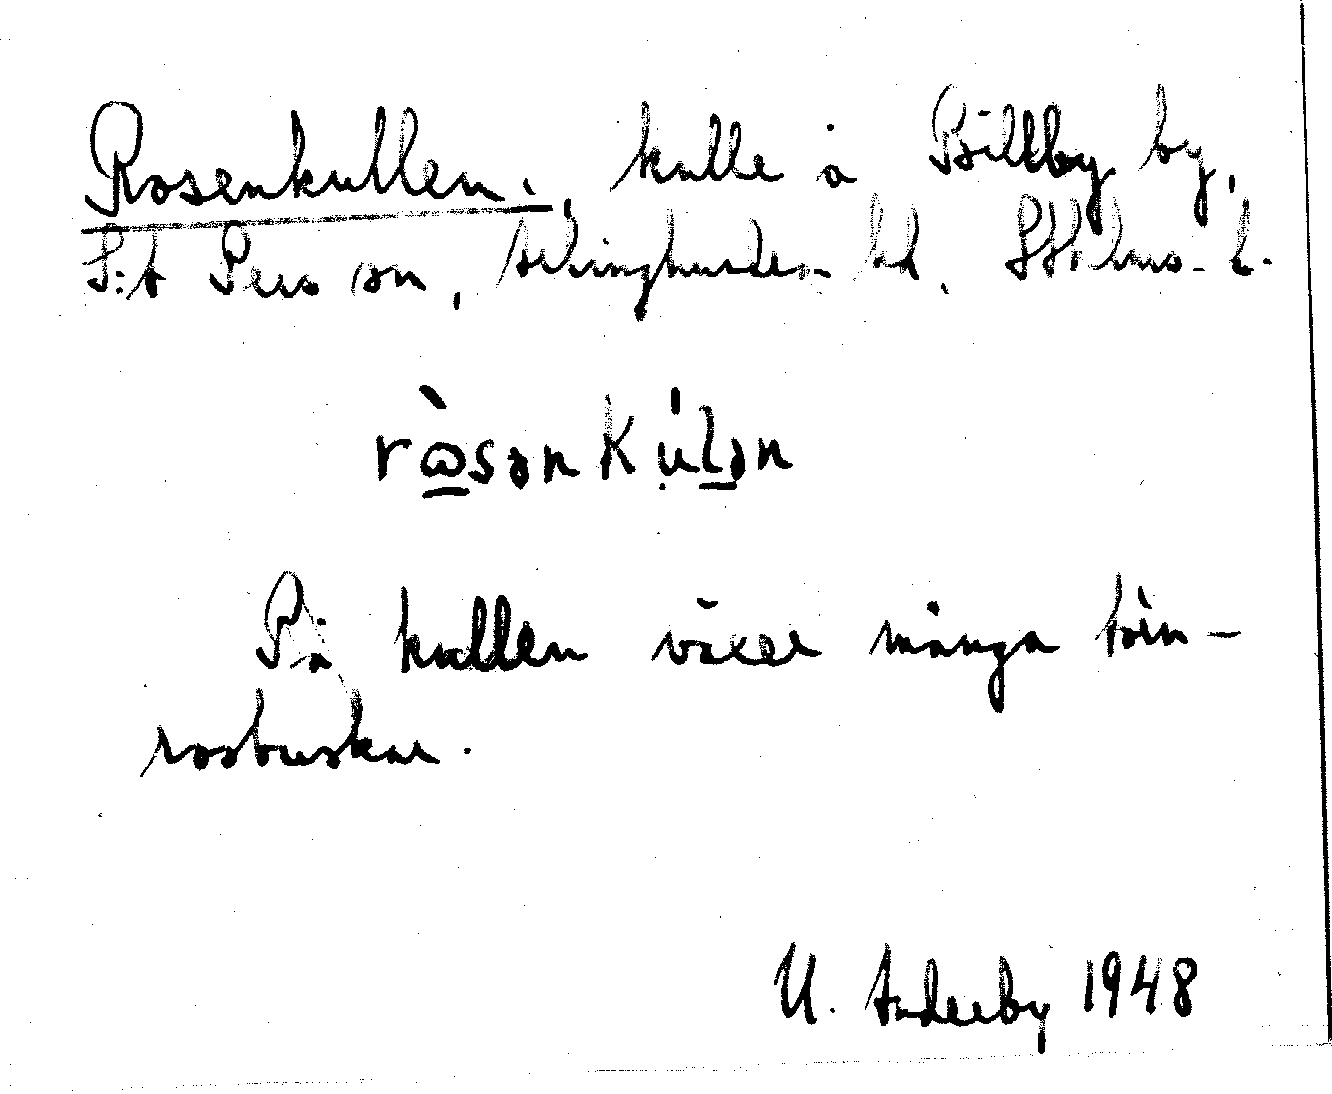 Rosenkullen, kulle å Billby by,
S:t Pers sn, Ærlinghundra hd. Sthlms l.
ròsənkúlən
På kullen växer många törn-
rosbuskar.
U. Anderby 1948